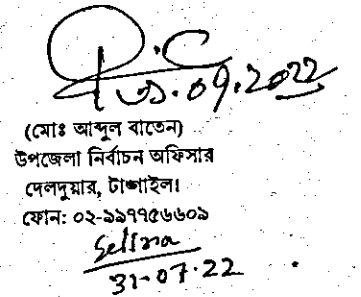 ৩১.০৭.২০২২
(মোঃ আব্দুল বাতেন)
উপজেলা নির্বাচন অফিসার
দেলদুয়ার, টাঙ্গাইল।
ফোন: ০২-৯৯৭৭৫৬৬০৯
Selina
31-07-22